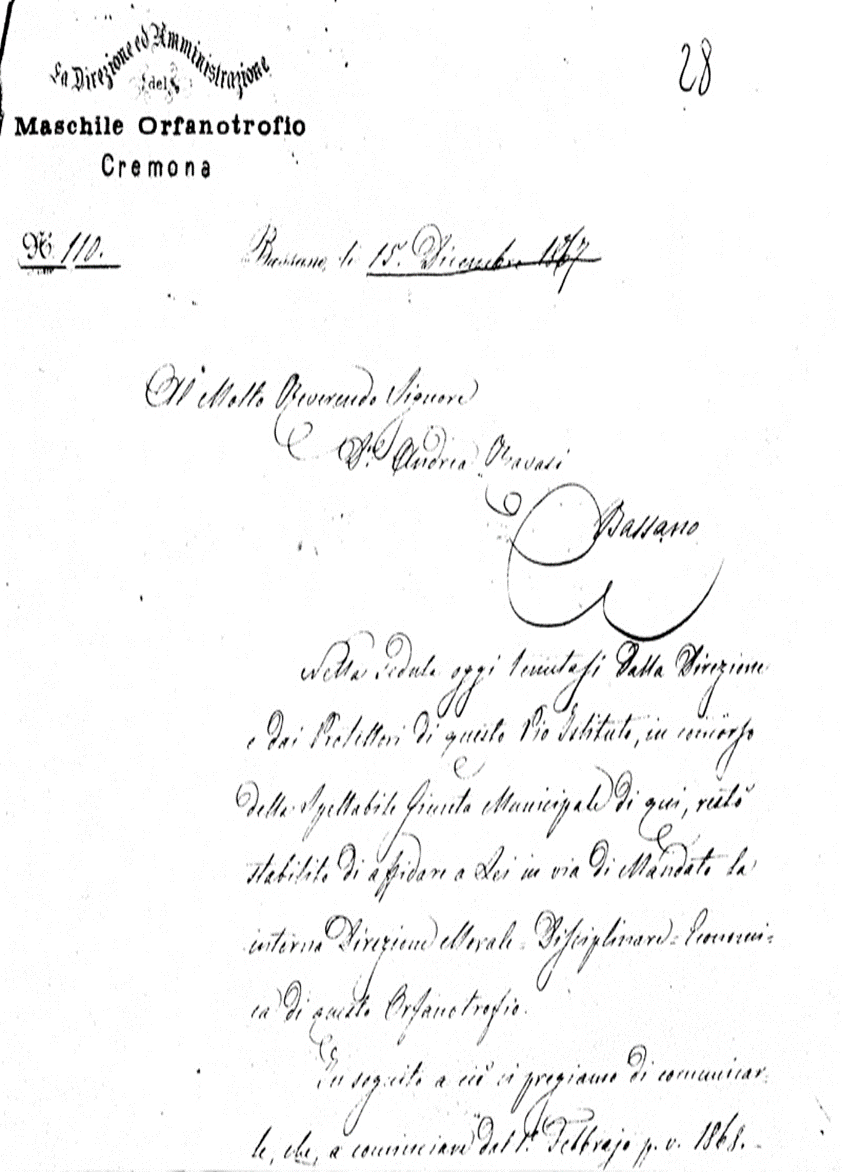 La Direzione ed Amministrazione
del
Maschile Orfanotrofio
Cremona
28
N. 110.
Bassano, li 15. Dicembre 1867
Al Molto Reverendo Signore
Dn. Andrea Ravasi
Bassano
Nella Seduta oggi tenutasi dalla Direzione
e dai Protettori di questo Pio Istituto, in concorso
della Spettabile Giunta Municipale di qui, restò
stabilito di affidare a Lei in via di Mandato la
interna Direzione Morale-Disciplinare-Economi-
ca di questo Orfanotrofio.
In seguito a ciò ci pregiamo di comunicar-
le, che, a cominciare dal 1º Febbrajo p. v. 1868.